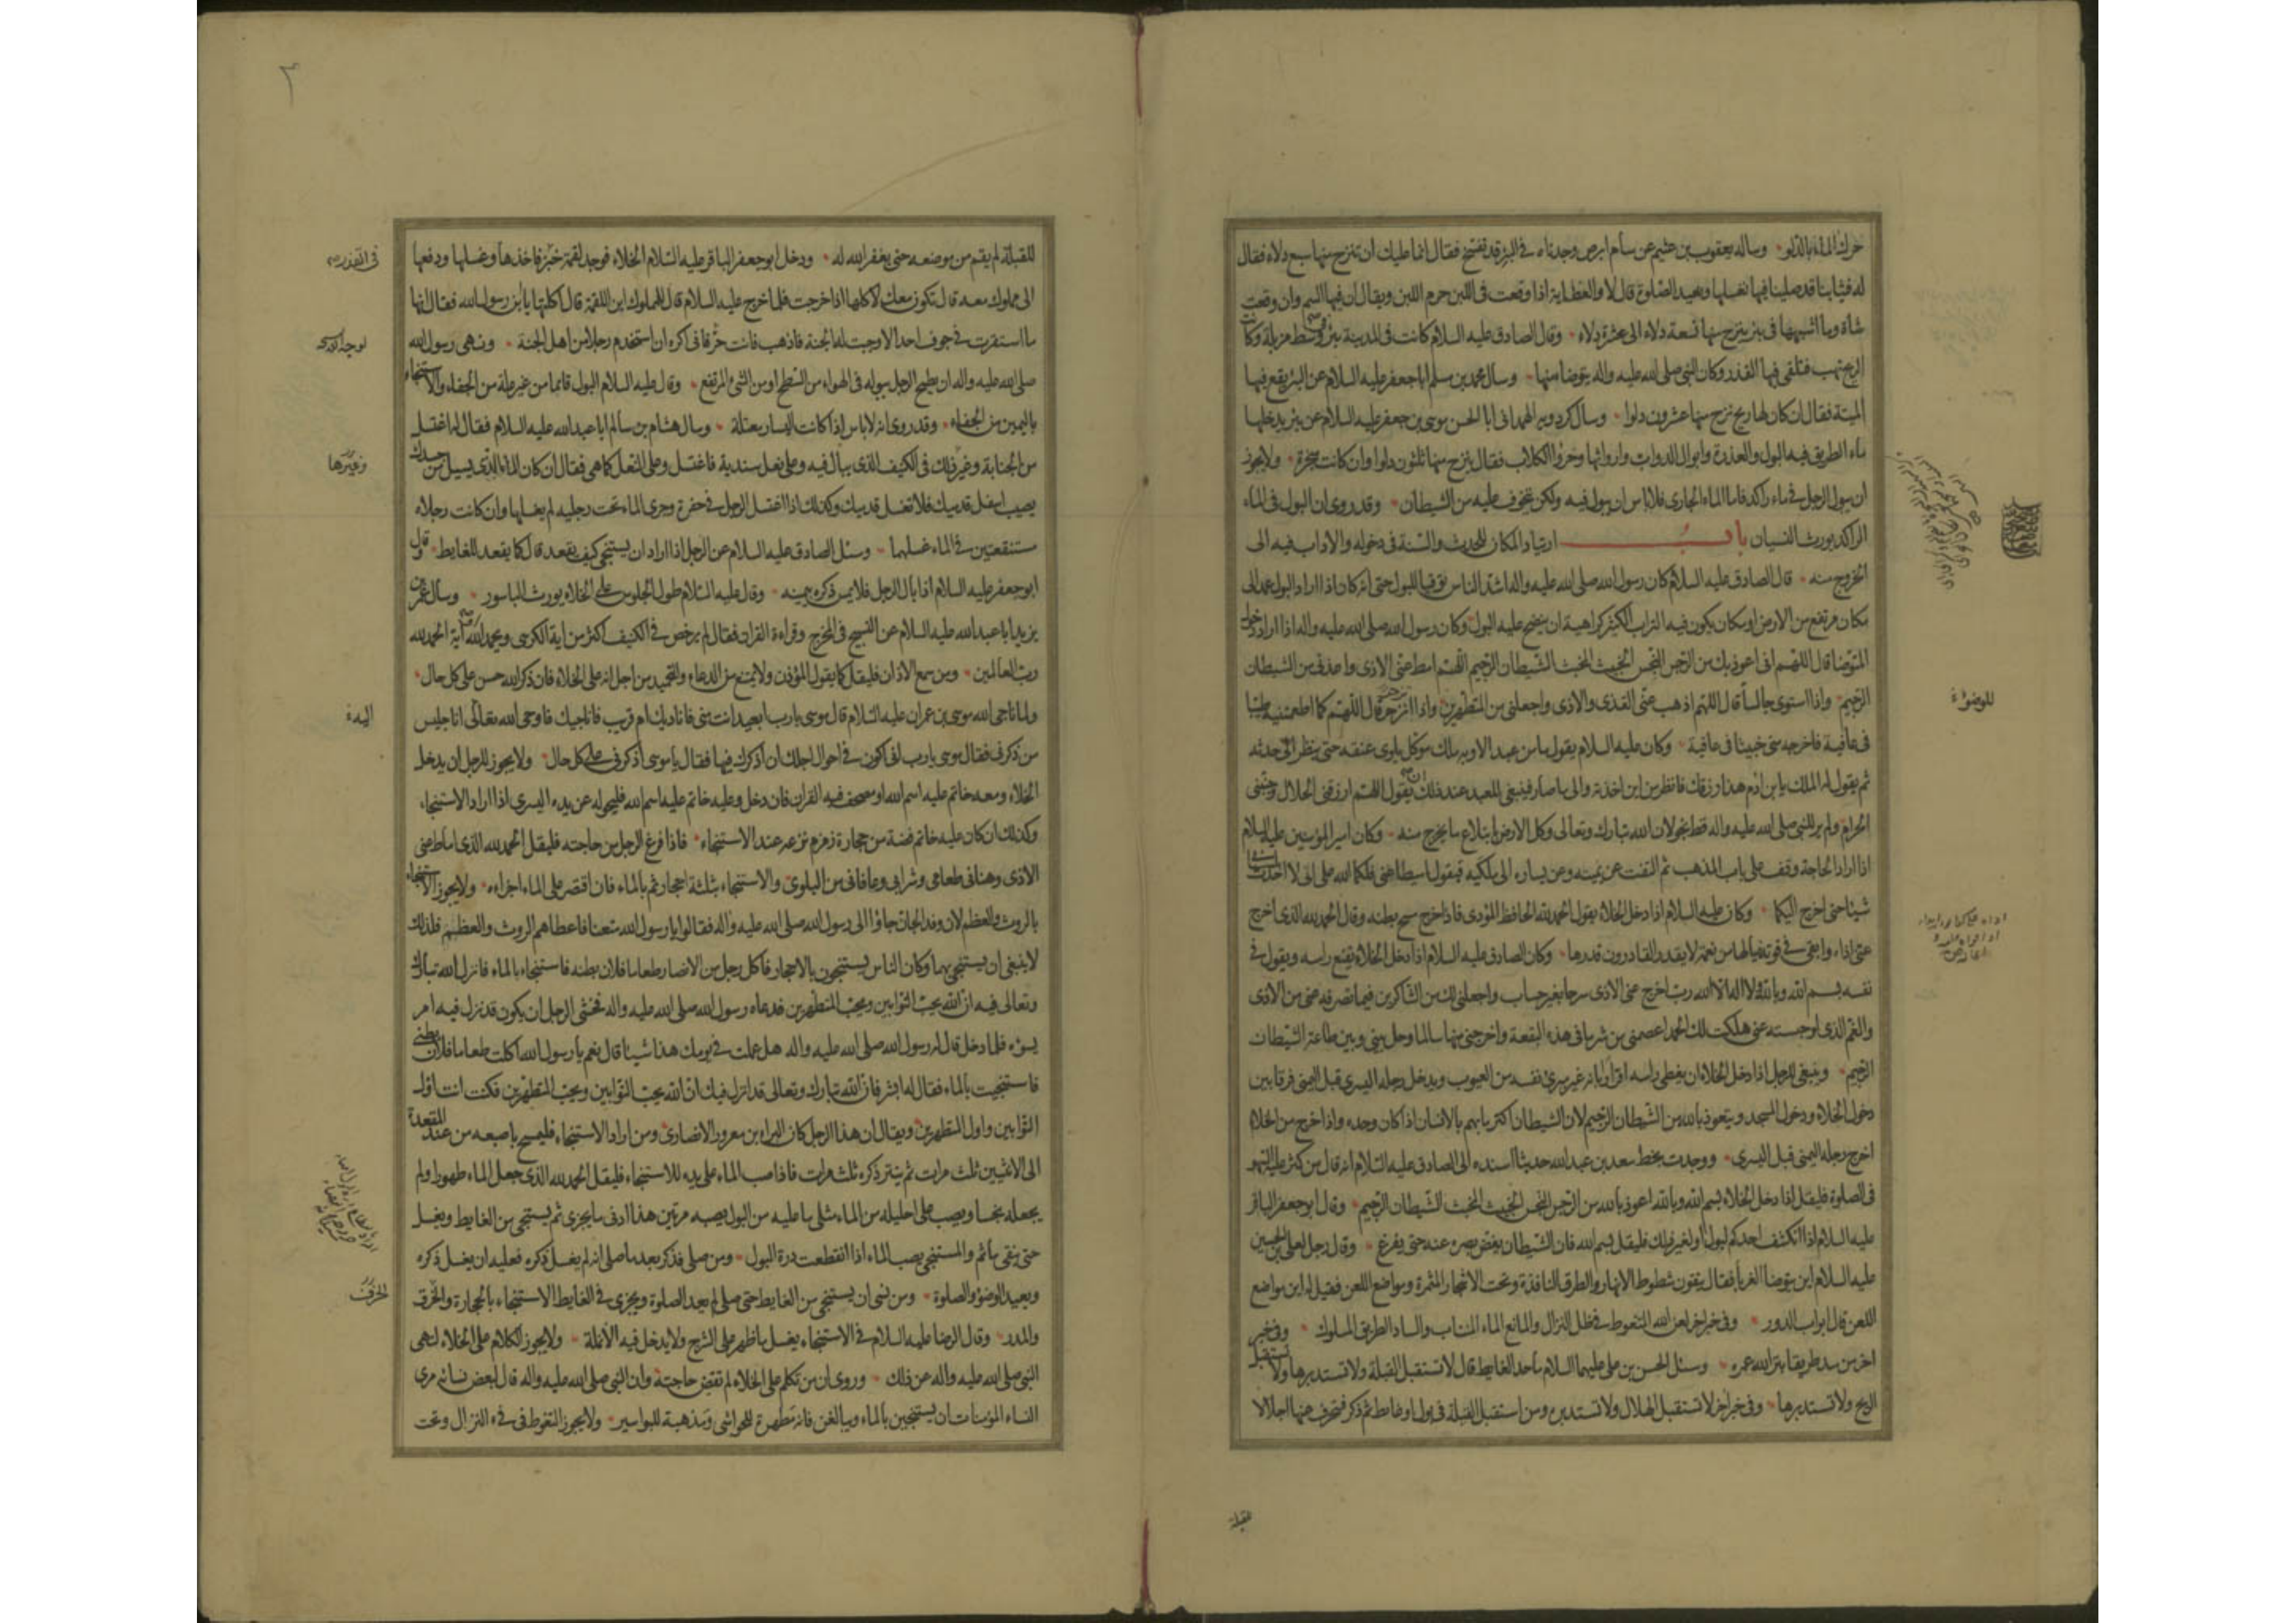 حرك الماء بالدلو وساله يعقوب بن عثيم عن سام ابرص وجدناه في البئر قد تفسخ فقال انما عليك ان تنزح منها سبع دلاء فقال
له فثيابنا قد صلينا فيها نغسلها ونعيد الصلوة قال لا والعظاية اذا وقعت في اللبن حرم اللبن ويقال ان فيها السم وان وقعت
شاة وما اشبهها في بئر ينزح منها تسعة دلاء الى عشرة دلاء وقال الصادق عليه السلام كانت في المدينة بئر في وسط مزبلة وكانت
الريح تهب فتلقي فيها القذر وكان النبي صلى الله عليه واله يتوضا منها وسال محمد بن مسلم ابا جعفر عليه السلام عن البئر يقع فيها
الميتة فقال ان كان لها ريح نزح منها عشرون دلوا وسال كردويه الهمداني ابا الحسن موسى بن جعفر عليه السلام عن بئر يدخلها
ماء الطريق فيه البول والعذرة وابوال الدواب وارواثها وخرؤ الكلاب فقال ينزح منها ثلثون دلوا وان كانت مبخرة ولا يجوز
ان يبول الرجل في ماء راكد فاما الماء الجاري فلا باس ان يبول فيه ولكن يتخوف عليه من الشيطان وقد روى ان البول في الماء
الراكد يورث النسيان باب ارتياد المكان للحدث والسنة في دخوله والاداب فيه الى
الخروج منه قال الصادق عليه السلام كان رسول الله صلى الله عليه واله اشد الناس توقيا للبول حتى انه كان اذا اراد البول عمد الى
مكان مرتفع من الارض او مكان يكون فيه التراب الكثير كراهية ان ينضح عليه البول وكان رسول الله صلى الله عليه واله اذا اراد دخول
المتوضا قال اللهم اني اعوذ بك من الرجس النجس الخبيث المخبث الشيطان الرجيم اللهم امط عني الاذى واعذني من الشيطان
الرجيم واذا استوى جالسا قال اللهم اذهب عني القذى والاذى واجعلني من المتطهرين واذا انزحر قال اللهم كما اطعمتنيه طيبا
في عافية فاخرجه مني خبيثا في عافية وكان عليه السلام يقول ما من عبد الا وبه ملك موكل يلوي عنقه حتى ينظر الى حدثه
ثم يقول له الملك يا بن ادم هذا رزقك فانظر من اين اخذته والى ما صار فينبغي للعبد عند ذلك ان يقول اللهم ارزقني الحلال وجنبني
الحرام ولم ير للنبي صلى الله عليه واله قط نجو لان الله تبارك وتعالى وكل الارض بابتلاع ما يخرج منه وكان امير المؤمنين عليه السلام
اذا اراد الحاجة وقف على باب المذهب ثم التفت عن يمينه وعن يساره الى ملكيه فيقول اميطا عني فلكما الله على ان لا احدث
شيئا حتى اخرج اليكما وكان عليه السلام اذا دخل الخلاء يقول الحمد لله الحافظ المؤدي فاذا خرج مسح بطنه وقال الحمد لله الذي اخرج
عني اذاه وابقى في قوته فيالها من نعمة لا يقدر القادرون قدرها وكان الصادق عليه السلام اذا دخل الخلاء يقنع راسه ويقول في
نفسه بسم الله وبالله ولا اله الا الله رب اخرج عني الاذى سرحا بغير حساب واجعلني لك من الشاكرين فيما تصرفه عني من الاذى
والغم الذي لو حبسته عني هلكت لك الحمد اعصمني من شر ما في هذه البقعة واخرجني منها سالما وحل بيني وبين طاعة الشيطان
الرجيم وينبغي للرجل اذا دخل الخلاء ان يغطي راسه اقرارا بانه غير مبرئ نفسه من العيوب ويدخل رجله اليسرى قبل اليمنى فرقا بين
دخول الخلاء ودخول المسجد ويتعوذ بالله من الشيطان الرجيم لان الشيطان اكثر ما يهم بالانسان اذا كان وحده واذا خرج من الخلاء
اخرج رجله اليمنى قبل اليسرى ووجدت بخط سعد بن عبد الله حديثا اسنده الى الصادق عليه السلام انه قال من كثر عليه السهو
في الصلوة فليقل اذا دخل الخلاء بسم الله وبالله اعوذ بالله من الرجس النجس الخبيث المخبث الشيطان الرجيم وقال ابو جعفر الباقر
عليه السلام اذا انكشف احدكم لبول او لغير ذلك فليقل بسم الله فان الشيطان يغض بصره عنه حتى يفرغ وقال رجل لعلي بن الحسين
عليه السلام اين يتوضا الغرباء فقال يتقون شطوط الانهار والطرق النافذة وتحت الاشجار المثمرة ومواضع اللعن فقيل له اين مواضع
اللعن قال ابواب الدور وفي خبر اخر لعن الله المتغوط في ظل النزال والمانع الماء المنتاب والساد الطريق المسلوك وفي خبر
اخر من سد طريقا بتر الله عمره وسئل الحسن بن علي عليهما السلام ما حد الغايط قال لا تستقبل القبلة ولا تستدبرها ولا تستقبل
الريح ولا تستدبرها وفي خبر اخر لا تستقبل الهلال ولا تستدبره ومن استقبل القبلة في بول او غايط ثم ذكر فتحرف عنها اجلالا
للوضوء
للقبلة لم يقم من موضعه حتى يغفر الله له ودخل ابو جعفر الباقر عليه السلام الخلاء فوجد لقمة خبز فاخذها وغسلها ودفعها
الى مملوك معه قال تكون معك لاكلها اذا خرجت فلما خرج عليه السلام قال للمملوك اين اللقمة قال اكلتها يا بن رسول الله فقال انها
ما استقرت في جوف احد الا وجبت له الجنة فاذهب فانت حر فاني اكره ان استخدم رجلا من اهل الجنة ونهى رسول الله
صلى الله عليه واله ان يطمح الرجل ببوله في الهواء من السطح او من الشئ المرتفع وقال عليه السلام البول قائما من غير علة من الجفاء والاستنجاء
باليمين من الجفاء وقد روى انه لا باس اذا كانت اليسار معتلة وسال هشام بن سالم ابا عبد الله عليه السلام فقال له اغتسل
من الجنابة وغير ذلك في الكنيف الذي يبال فيه وعلى نعل سندية فاغتسل وعلى النعل كما هي فقال ان كان الماء الذي يسيل من جسدك
يصيب اسفل قدميك فلا تغسل قدميك وكذلك اذا اغتسل الرجل في حفرة وجرى الماء تحت رجليه لم يغسلها وان كانت رجلاه
مستنقعتين في الماء غسلهما وسئل الصادق عليه السلام عن الرجل اذا اراد ان يستنجي كيف يقعد قال كما يقعد للغايط وقال
ابو جعفر عليه السلام اذا بال الرجل فلا يمس ذكره بيمينه وقال عليه السلام طول الجلوس على الخلاء يورث الباسور وسال عمر بن
يزيد ابا عبد الله عليه السلام عن التسبيح في المخرج وقراءة القران فقال لم يرخص في الكنيف اكثر من اية الكرسي ويحمد الله اية الحمد لله
رب العالمين ومن سمع الاذان فليقل كما يقول المؤذن ولا يمتنع من الدعاء والتحميد من اجل انه على الخلاء فان ذكر الله حسن على كل حال
ولما ناجى الله موسى بن عمران عليه السلام قال موسى يا رب ابعيد انت مني فاناديك ام قريب فاناجيك فاوحى الله تعالى انا جليس
من ذكرني فقال موسى يا رب اني اكون في احوال اجلك ان اذكرك فيها فقال يا موسى اذكرني على كل حال ولا يجوز للرجل ان يدخل
الخلاء ومعه خاتم عليه اسم الله او مصحف فيه القران فان دخل وعليه خاتم عليه اسم الله فليحوله عن يده اليسرى اذا اراد الاستنجاء
وكذلك ان كان عليه خاتم فضة من حجارة زمزم نزعه عند الاستنجاء فاذا فرغ الرجل من حاجته فليقل الحمد لله الذي اماط عني
الاذى وهناني طعامي وشرابي وعافاني من البلوى والاستنجاء بثلثة احجار ثم بالماء فان اقتصر على الماء اجزاه ولا يجوز الاستنجاء
بالروث والعظم لان وفد الجان جاؤا الى رسول الله صلى الله عليه واله فقالوا يا رسول الله متعنا فاعطاهم الروث والعظم فلذلك
لا ينبغي ان يستنجي بهما وكان الناس يستنجون بالاحجار فاكل رجل من الانصار طعاما فلان بطنه فاستنجى بالماء فانزل الله تبارك
وتعالى فيه ان الله يحب التوابين ويحب المتطهرين فدعاه رسول الله صلى الله عليه واله فخشي الرجل ان يكون قد نزل فيه امر
يسوءه فلما دخل قال له رسول الله صلى الله عليه واله هل عملت في يومك هذا شيئا قال نعم يا رسول الله اكلت طعاما فلان بطني
فاستنجيت بالماء فقال له ابشر فان الله تبارك وتعالى قد انزل فيك ان الله يحب التوابين ويحب المتطهرين فكنت انت اول
التوابين واول المتطهرين ويقال ان هذا الرجل كان البراء بن معرور الانصاري ومن اراد الاستنجاء فليمسح باصبعه من عند المقعدة
الى الانثيين ثلث مرات ثم ينتر ذكره ثلث مرات فاذا صب الماء على يده للاستنجاء فليقل الحمد لله الذي جعل الماء طهورا ولم
يجعله نجسا ويصب على احليله من الماء مثلى ما عليه من البول يصبه مرتين هذا ادنى ما يجزي ثم يستنجي من الغايط ويغسل
حتى ينقى ما ثم والمستنجي يصب الماء اذا انقطعت درة البول ومن صلى فذكر بعد ما صلى انه لم يغسل ذكره فعليه ان يغسل ذكره
ويعيد الوضوء والصلوة ومن نسي ان يستنجي من الغايط حتى صلى لم يعد الصلوة ويجزي في الغايط الاستنجاء بالحجارة والخرق
والمدر وقال الرضا عليه السلام في الاستنجاء يغسل ما ظهر على الشرج ولا يدخل فيه الانملة ولا يجوز الكلام على الخلاء لنهي
النبي صلى الله عليه واله عن ذلك وروى ان من تكلم على الخلاء لم تقض حاجته وان النبي صلى الله عليه واله قال لبعض نسائه مري
النساء المؤمنات ان يستنجين بالماء ويبالغن فانه مطهرة للحواشي ومذهبة للبواسير ولا يجوز التغوط في فيء النزال وتحت
وغيرها
الخزف